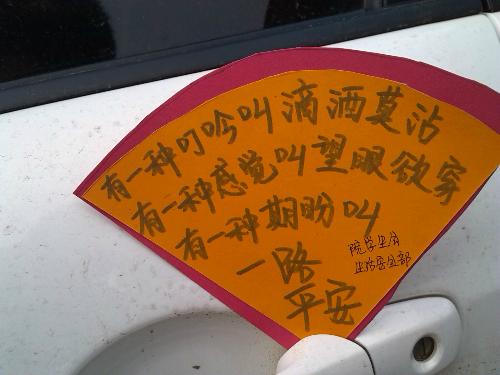 有一种叮咛叫滴酒莫沾
有一种感觉叫望眼欲穿
有一种期盼叫
一路
平安
院学生会
生活安全部